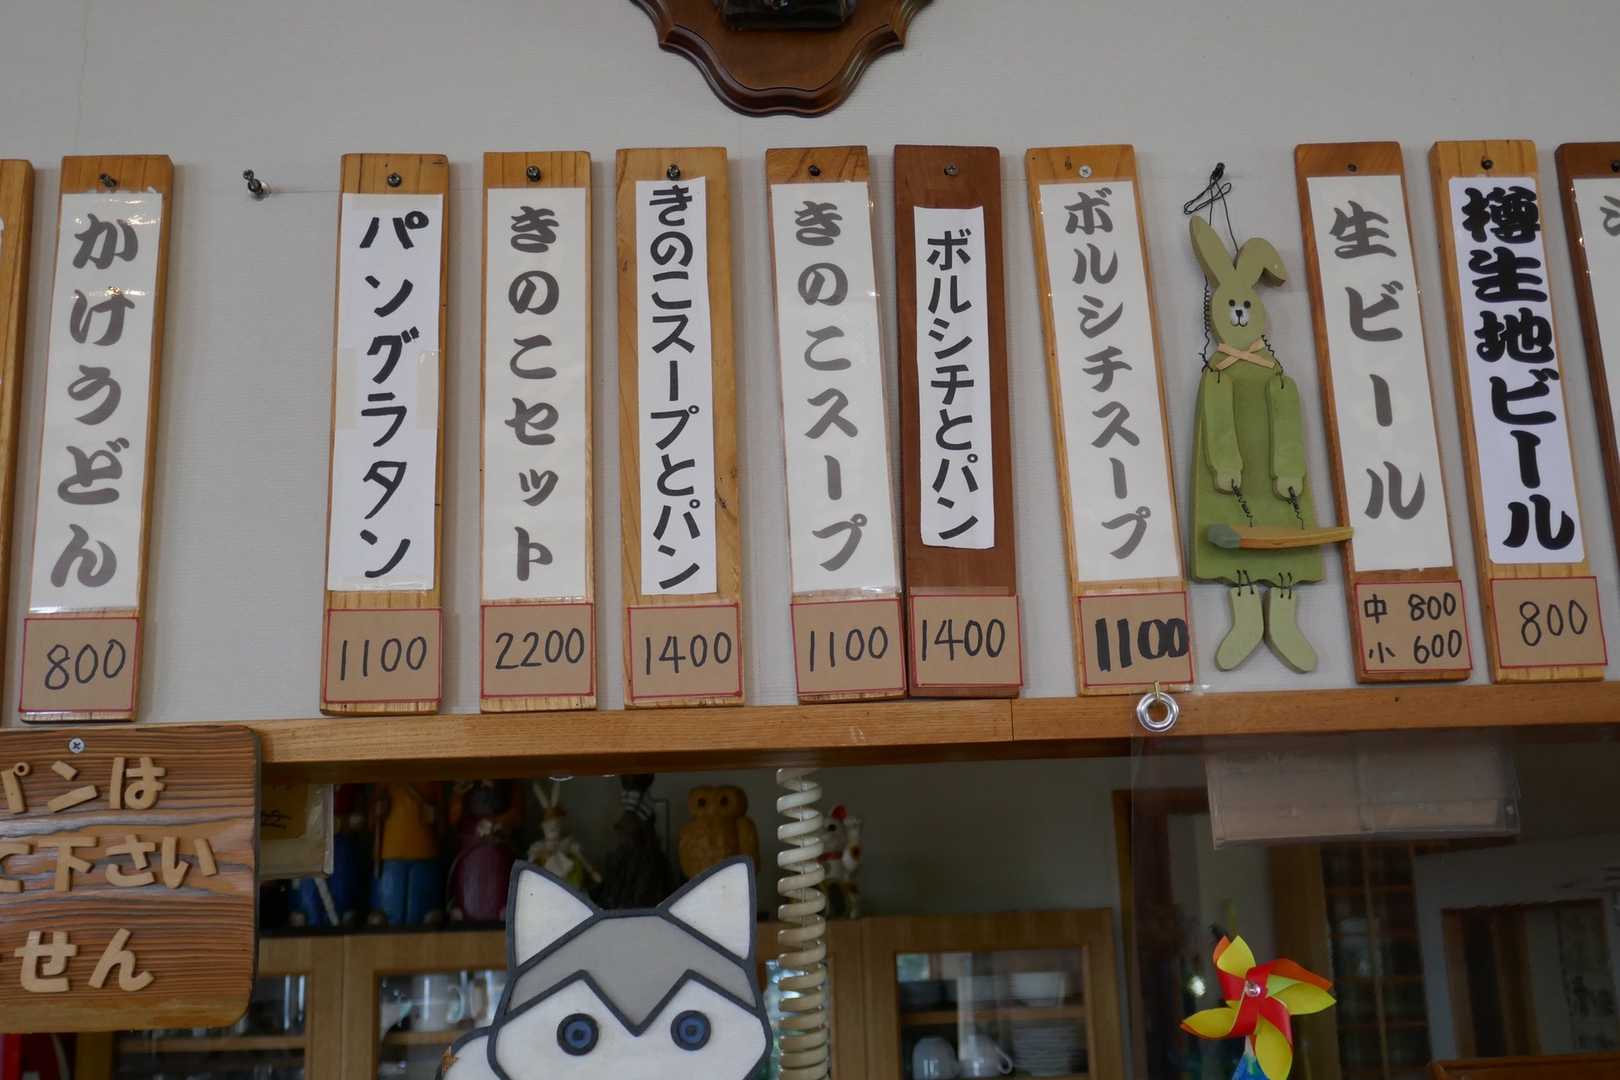 樽生地ビール
800
生ビール
中 800
小 600
ボルシチスープ
1100
ボルシチとパン
1400
きのこスープ
1100
きのこスープとパン
1400
きのこセット
2200
パングラタン
1100
かけうどん
800
パンは
下さい
せん